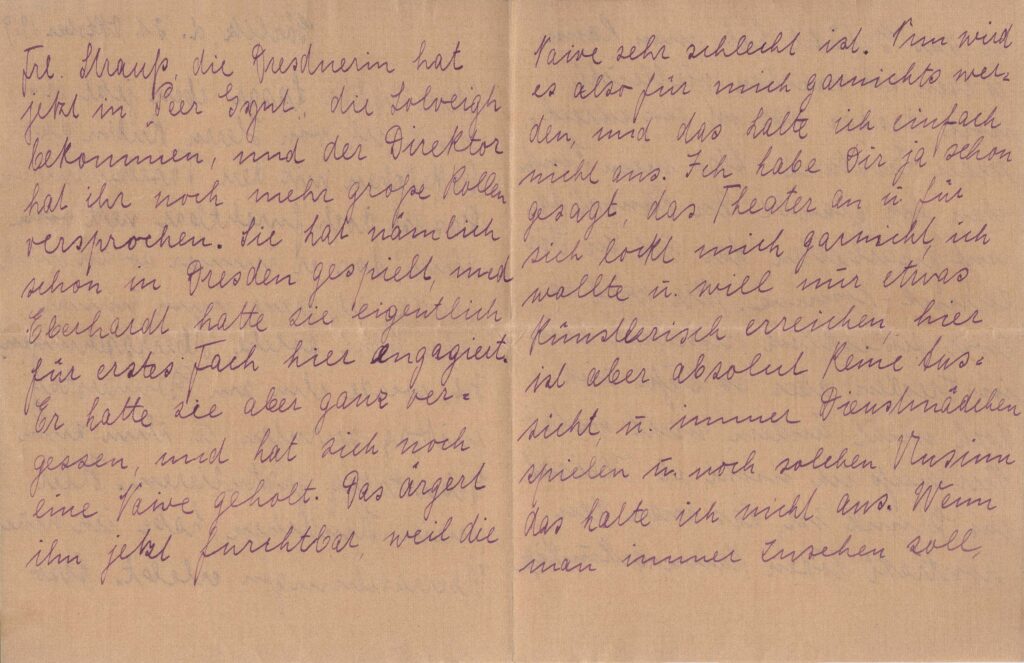 Frl. Strauß, die Dresdnerin hat
jetzt in Peer Gynt, die Solveigh
bekommen, und der Direktor
hat ihr noch mehr große Rollen
versprochen. Sie hat nämlich
schon in Dresden gespielt, und
Eberhardt hatte sie eigentlich
für erstes Fach hier angagiert.
Er hatte sie aber ganz ver=
gessen, und hat sich noch
eine Naive geholt. Das ärgert
ihn jetzt furchtbar, weil die
Naive sehr schlecht ist. Nun wird
es also für mich garnichts wer=
den, und das halte ich einfach
nicht aus. Ich habe Dir ja schon
gesagt, das Theater an u für
sich lockt mich garnicht, ich
wollte u. will nur etwas
künstlerisch erreichen, hier
ist aber absolut keine Aus=
sicht, u. immer Dienstmädchen
spielen u. noch solchen Unsinn
das halte ich nicht aus. Wenn
man immer zusehen soll,